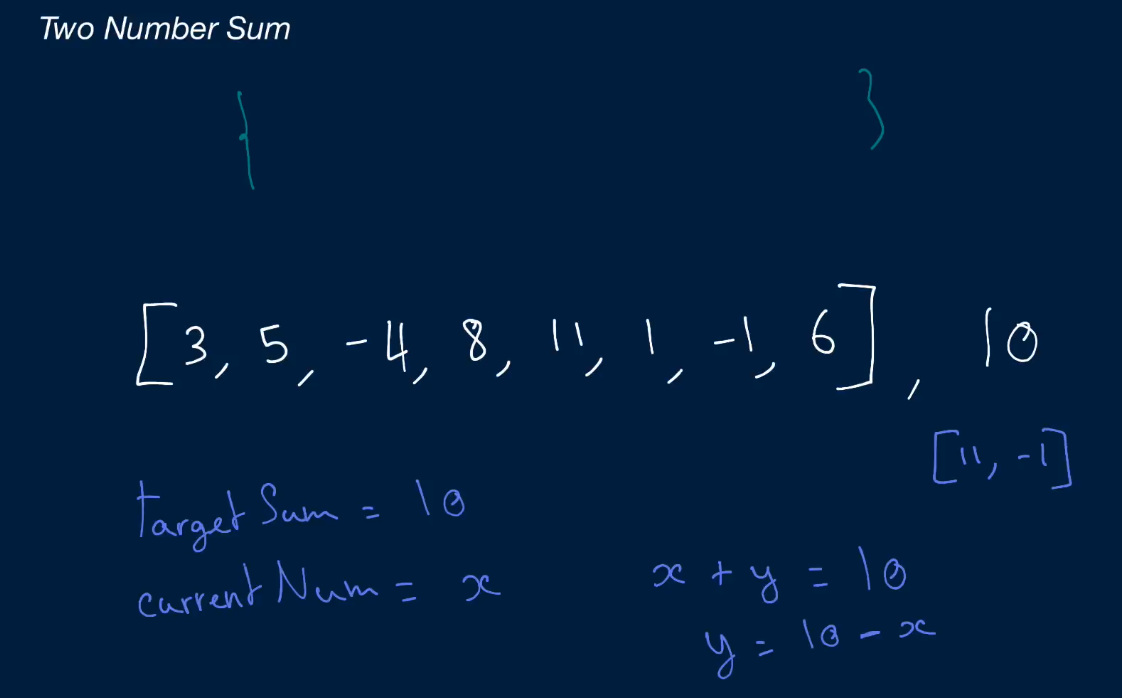 Two Number Sum
{ }
[3, 5, -4, 8, 11, 1, -1, 6], 10
[11, -1]
targetSum = 10
currentNum = x
x + y = 10
y = 10 - x